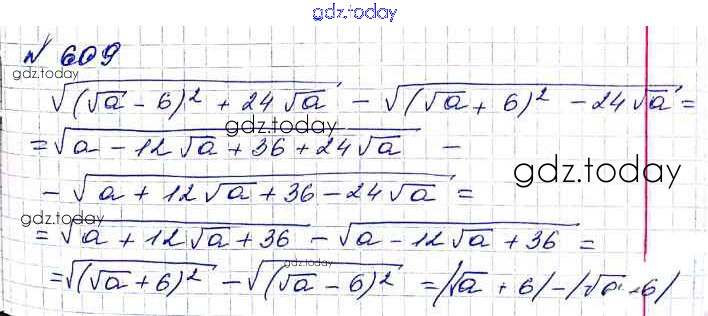 gdz.today
№ 609
gdz.today
√((√a - 6)² + 24√a) - √((√a + 6)² - 24√a) =
gdz.today
= √(a - 12√a + 36 + 24√a) -
gdz.today
- √(a + 12√a + 36 - 24√a) =
gdz.today
= √(a + 12√a + 36) - √(a - 12√a + 36) =
gdz.today
= √((√a + 6)²) - √((√a - 6)²) = |√a + 6| - |√a - 6|